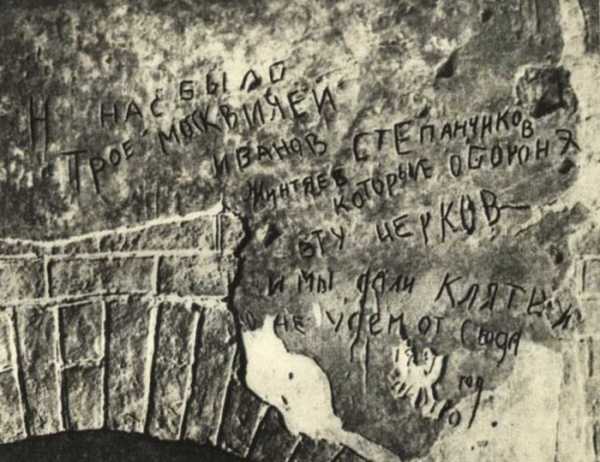 Н НАС БЫЛО
ТРОЕ МОСКВИЧЕЙ
ИВАНОВ СТЕПАНЧИКОВ
ЖИНТЯЕВ КОТОРЫЕ ОБОРОНЯ
ЭТУ ЦЕРКОВ
И МЫ ДАЛИ КЛЯТВУ
НЕ УДЕМ ОТ СЮДА
год